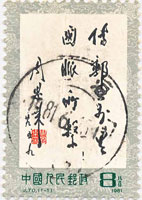 传郵萬里
國脈所繫
周恩来
中國人民郵政
8分
J.70.(1-1)
1981